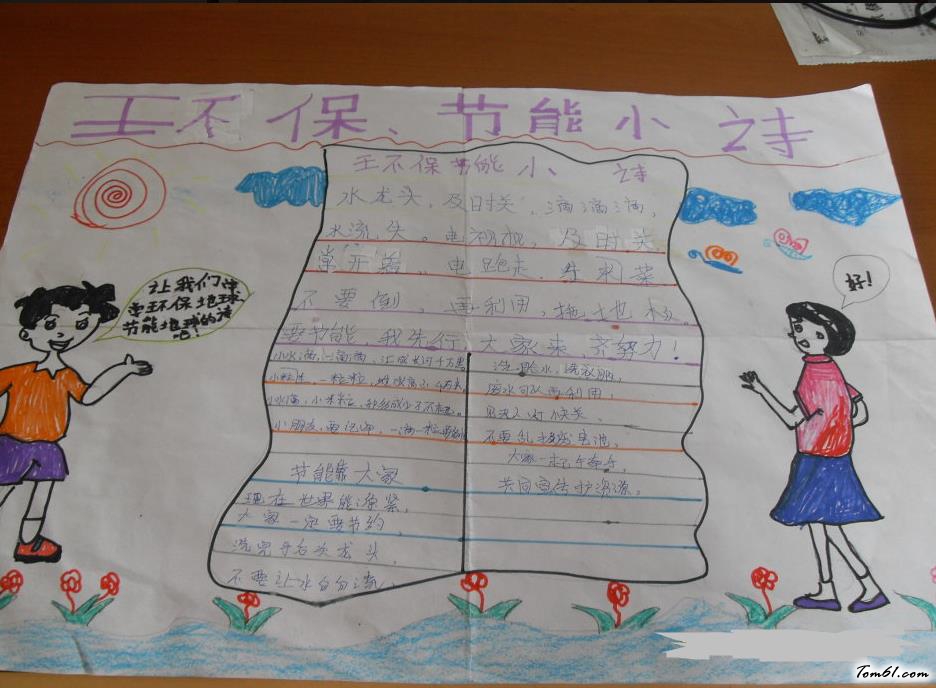 王不保、节能小之诗
王不保节能小、之诗
水龙头，及时关，滴滴滴，
水流失。电视机，及时关
常开着，电跑走，生利菜
不要倒，再利用，拖地板。
要节能，我先行，大家来，齐努力！
小水滴，一滴滴，汇成长河千万里
小粒米，一粒粒，
小水滴，小米粒，
小朋友，要记牢，一滴一粒要
节能靠大家
现在世界能源紧，
大家一定要节约，
洗完手后关龙头
不要让水白白流，
洗脸水，洗衣服，
废水可以再利用，
见无人灯快关、
不要乱扔废电池，
大家一起手牵手，
共同宣传护资源。
让我们弹
奏环保地球
节能地球的诗
吧！
好！
Tom61.com